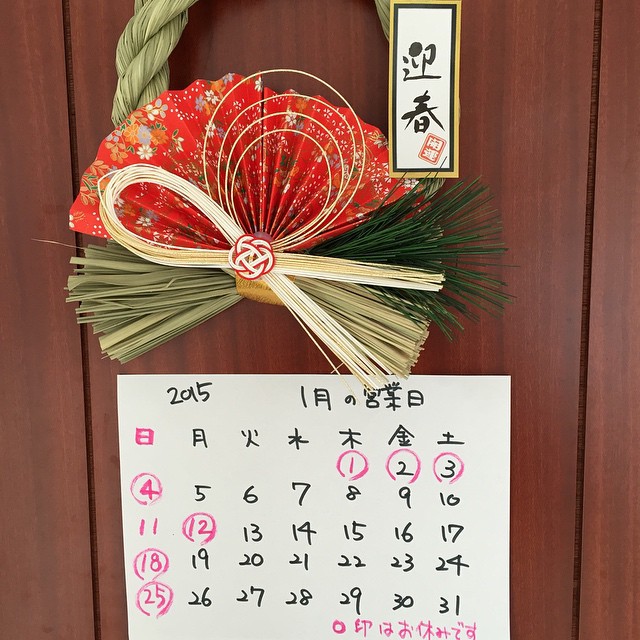 迎春
2015 1月の営業日
日 月 火 水 木 金 土
1 2 3
4 5 6 7 8 9 10
11 12 13 14 15 16 17
18 19 20 21 22 23 24
25 26 27 28 29 30 31
○印はお休みです